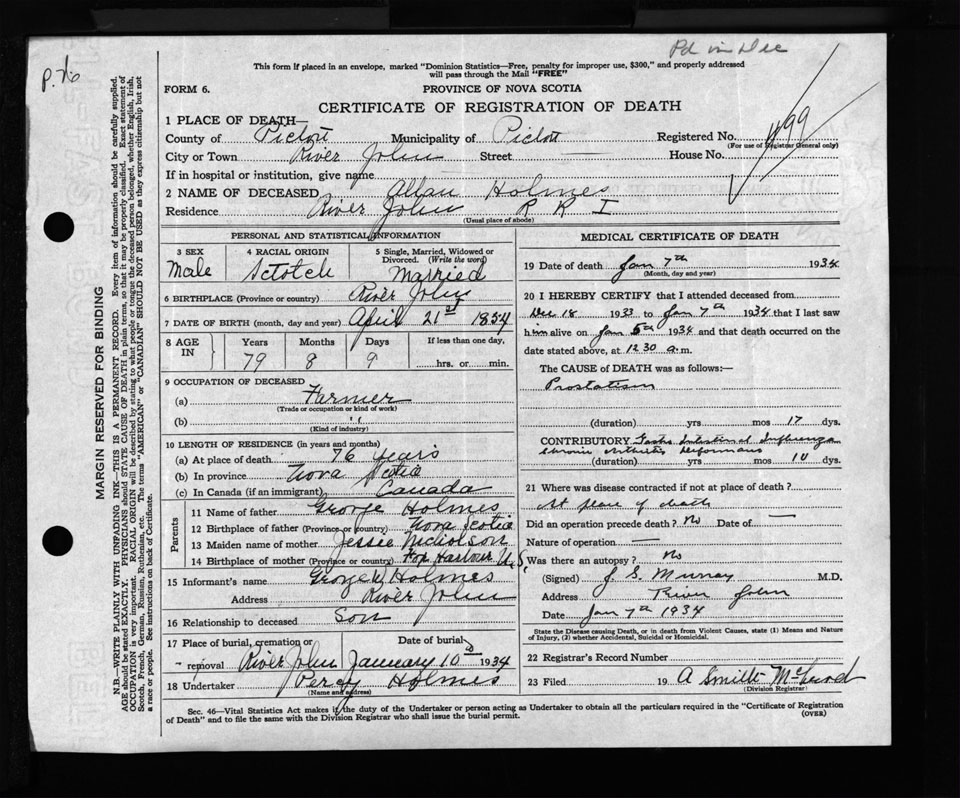 Pd in Dec
P. 76
This form if placed in an envelope, marked "Dominion Statistics—Free, penalty for improper use, $300," and properly addressed
will pass through the Mail "FREE"
FORM 6.
PROVINCE OF NOVA SCOTIA
CERTIFICATE OF REGISTRATION OF DEATH
1 PLACE OF DEATH—
County of Pictou Municipality of Pictou Registered No. 499
(For use of Registrar General only)
City or Town River John Street — House No.
If in hospital or institution, give name
2 NAME OF DECEASED Allan Holmes
Residence River John R R I
(Usual place of abode)
PERSONAL AND STATISTICAL INFORMATION
3 SEX 4 RACIAL ORIGIN 5 Single, Married, Widowed or
Divorced. (Write the word)
Male Sctotch Married
6 BIRTHPLACE (Province or country) River John
7 DATE OF BIRTH (month, day and year) April 21st 1854
8 AGE IN Years Months Days If less than one day,
79 8 9 hrs. or min.
9 OCCUPATION OF DECEASED
(a) Farmer
(Trade or occupation or kind of work)
(b) "
(Kind of industry)
10 LENGTH OF RESIDENCE (in years and months)
(a) At place of death 76 years
(b) In province Nova Scotia
(c) In Canada (if an immigrant) Canada
Parents
11 Name of father George Holmes
12 Birthplace of father (Province or country) Nova Scotia
13 Maiden name of mother Jessie Nicholson
14 Birthplace of mother (Province or country) Fox Harbour N.S.
15 Informant's name George Holmes
Address River John
16 Relationship to deceased Son
17 Place of burial, cremation or Date of burial
removal River John January 10 1934
18 Undertaker Percy Holmes
(Name and address)
MEDICAL CERTIFICATE OF DEATH
19 Date of death Jan 7th 1934
(Month, day and year)
20 I HEREBY CERTIFY that I attended deceased from
Dec 18 1933 to Jan 7th 1934 that I last saw
him alive on Jan 5th 1934 and that death occurred on
date stated above, at 12 30 a.m.
The CAUSE OF DEATH was as follows:—
Prostatism
(duration) yrs mos 17 dys.
CONTRIBUTORY Gastro Intestinal Influenza
Chronic Arthritis Deformans
(duration) yrs mos 10 dys.
21 Where was disease contracted if not at place of death?
At place of death
Did an operation precede death? No Date of —
Nature of operation —
Was there an autopsy? No
(Signed) J. S. Murray M.D.
Address River John
Date Jan 7th 1934
State the Disease causing Death, or in death from Violent Causes, state (1) Means and Nature
of Injury, (2) whether Accidental, Suicidal or Homicidal.
22 Registrar's Record Number
23 Filed 19 A Smith McLeod
(Division Registrar)
Sec. 46—Vital Statistics Act makes it the duty of the Undertaker or person acting as Undertaker to obtain all the particulars required in the "Certificate of Registration
of Death" and to file the same with the Division Registrar who shall issue the burial permit.
(OVER)
MARGIN RESERVED FOR BINDING
N.B.—WRITE PLAINLY WITH UNFADING INK—THIS IS A PERMANENT RECORD. Every item of information should be carefully supplied.
AGE should be stated EXACTLY. PHYSICIANS should STATE CAUSE OF DEATH in plain terms, so that it may be properly classified. Exact statement of
OCCUPATION is very important. RACIAL ORIGIN will be described by stating to what people or tongue the deceased person belonged, whether English, Irish,
Scotch, French, German, Russian, Ruthenian, etc. The terms "AMERICAN" or "CANADIAN" SHOULD NOT BE USED as they express citizenship but not
a race or people. See instructions on back of Certificate.